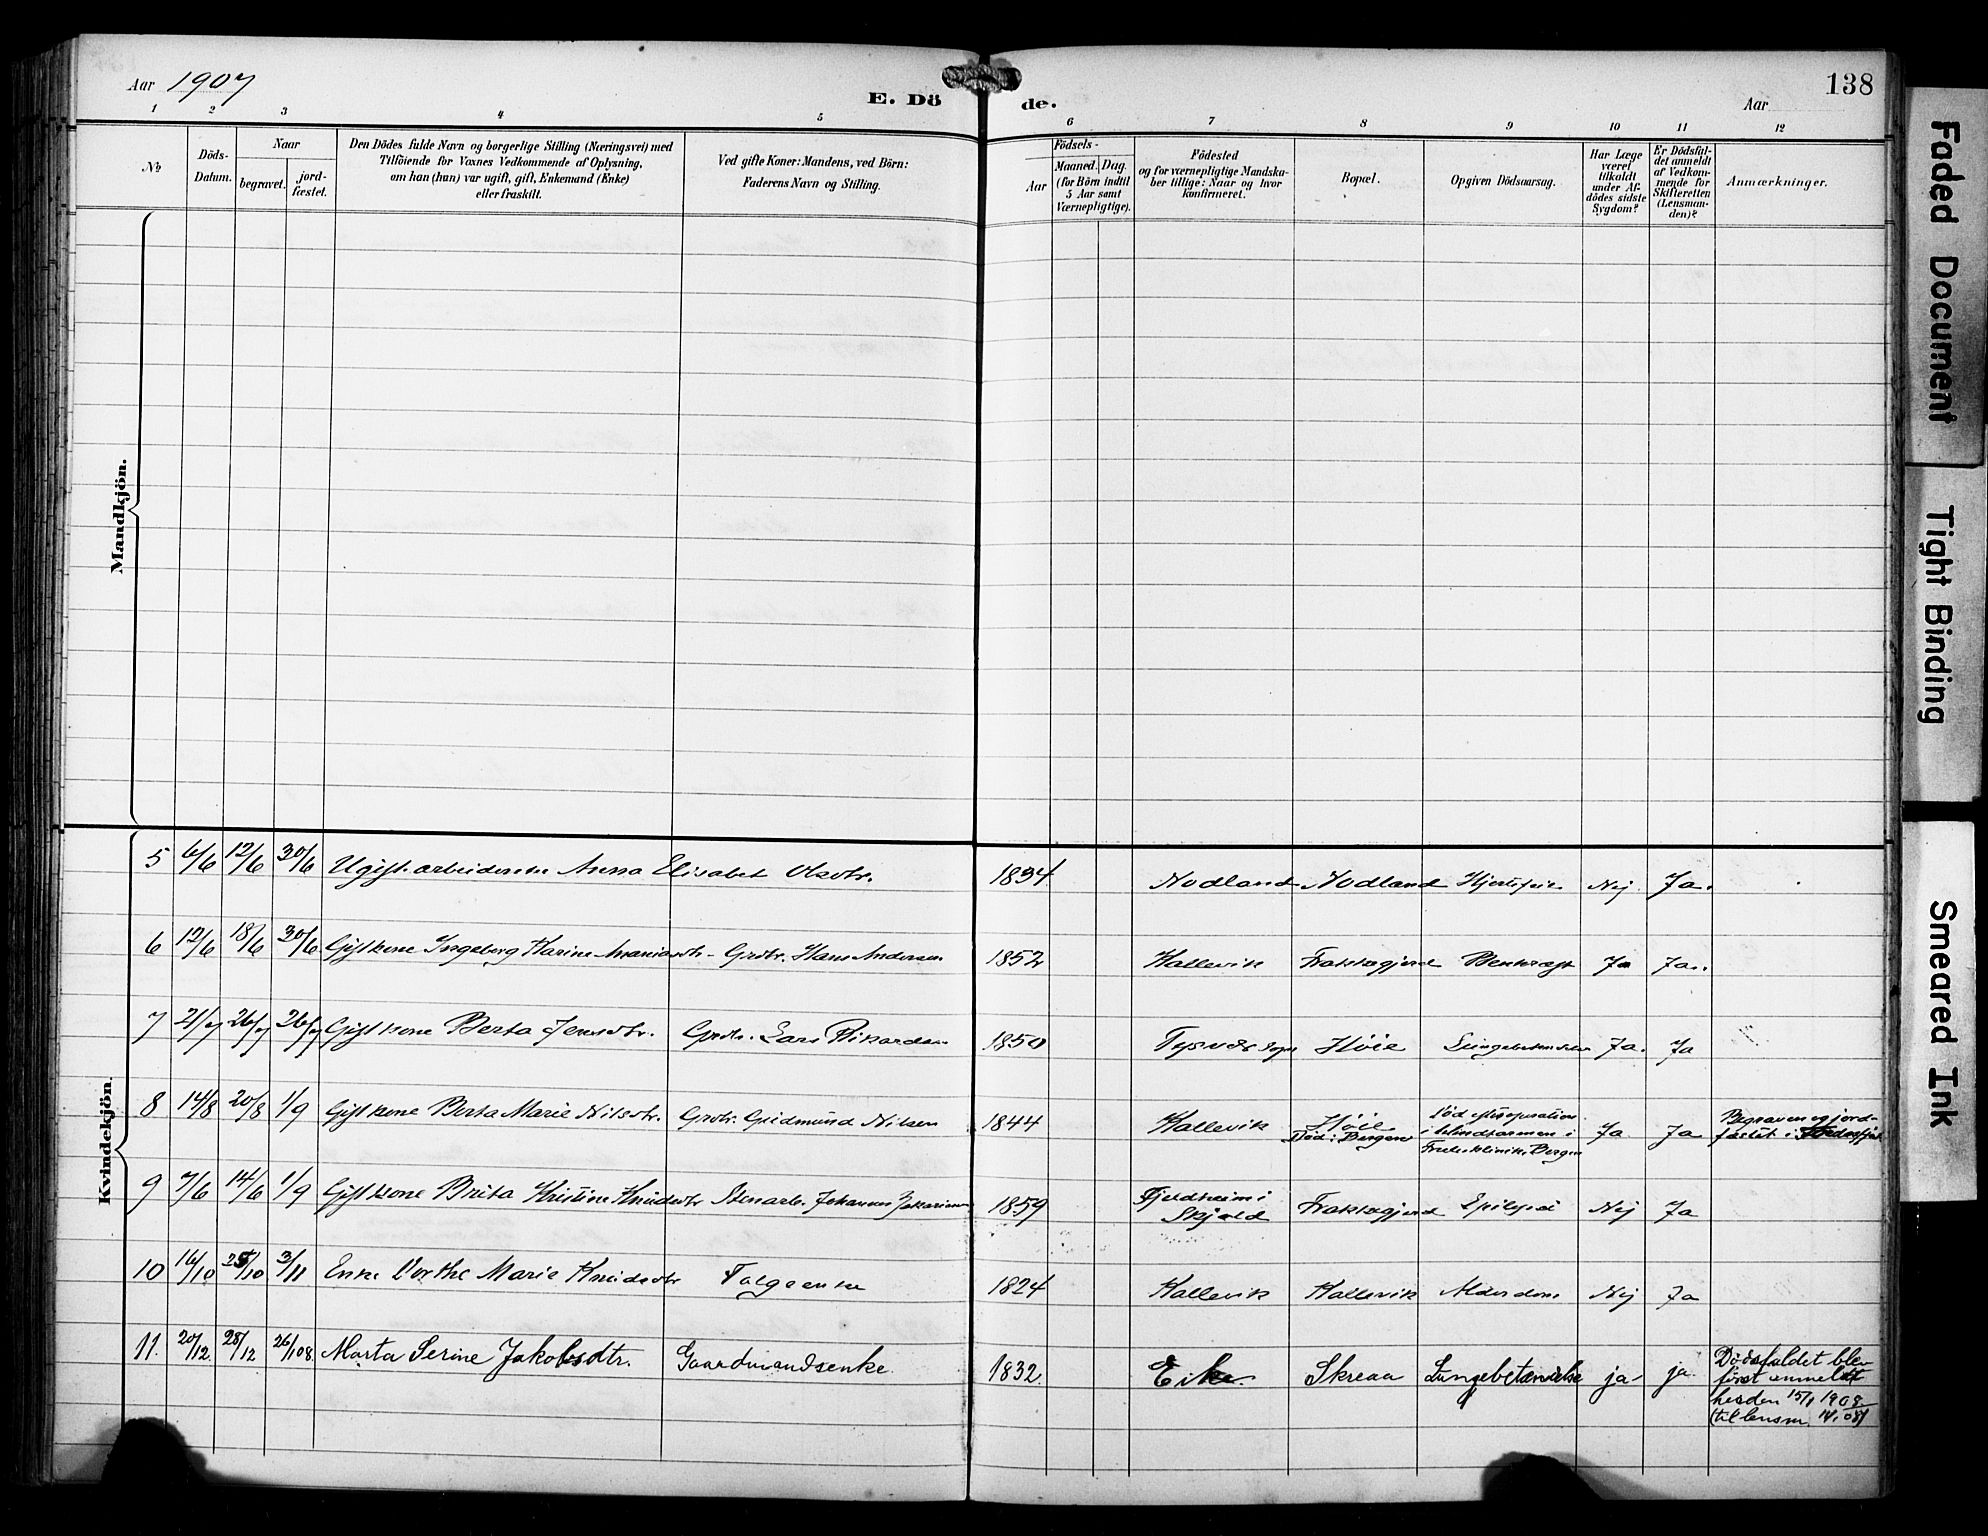 Aar 1907
E. Dö de.
Aar
138
1 2 3 4 5 6 7 8 9 10 11 12
No
Döds-Datum.
Naar
begravet.
jord-fæstet.
Den Dödes fulde Navn og borgerlige Stilling (Næringsvei) med
Tilföiende for Voxnes Vedkommende af Oplysning,
om han (hun) var ugift, gift, Enkemand (Enke)
eller fraskilt.
Ved gifte Koner: Mandens, ved Börn:
Faderens Navn og Stilling.
Födsels-
Aar
Maaned. Dag.
(for Börn indtil
5 Aar samt
Værnepligtige).
Födested
og for værnepligtige Mandska-
ber tillige: Naar og hvor
konfirmeret.
Bopæl.
Opgiven Dödsaarsag.
Har Læge
været
tilkaldt
under Af-
dödes sidste
Sygdom?
Er Dödsfal-
det anmeldt
af Vedkom-
mende for
Skifteretten
(Lensman-
den)?
Anmærkninger.
Mandkjön.
Kvindekjön.
5 6/6 12/6 30/6 Ugift arbeiderske Anna Elisabet Olsdtr. 1834 Nodland Nodland Hjertefeil Nej Ja.
6 12/6 18/6 30/6 Gift kone Ingeborg Karine Ananiasdtr - Grdbr. Hans Andersen 1852 Hallevik Ja Ja.
7 21/7 26/7 26/7 Gift kone Berta Jensdtr. Grdbr. Lars Rikardsen 1850 Tysvær sogn Høie Lungebetændelse Ja. Ja
8 14/8 20/8 1/9 Gift kone Berta Marie Nilsdtr. Grdbr. Gudmund Nilsen 1844 Hallevik Høie
Død i Bergen
Død efter operation
i blindtarmen i
Bergen
Ja Ja
Begraven og jord-
fæstet i
9 7/6 14/6 1/9 Gift kone Brita Kristine Knudsdtr Stenarb. Johannes Zakariasen 1859 Fjeldheim i
Skjold
Epilepsi Nej Ja
10 16/10 25/10 3/11 Enke Dorthe Marie Knudsdtr Folgeenke 1824 Hallevik Hallevik Alderdom Nej Ja
11. 20/12. 28/12 26/1 08. Marta Serine Jakobsdtr. Gaardmandsenke 1832. Eike. Skreaa Lungebetændelse ja ja
Dødsfaldet blev
først anmeldt
hesden 15/1 1908
(til lensm. 08)
Faded Document
Tight Binding
Smeared Ink